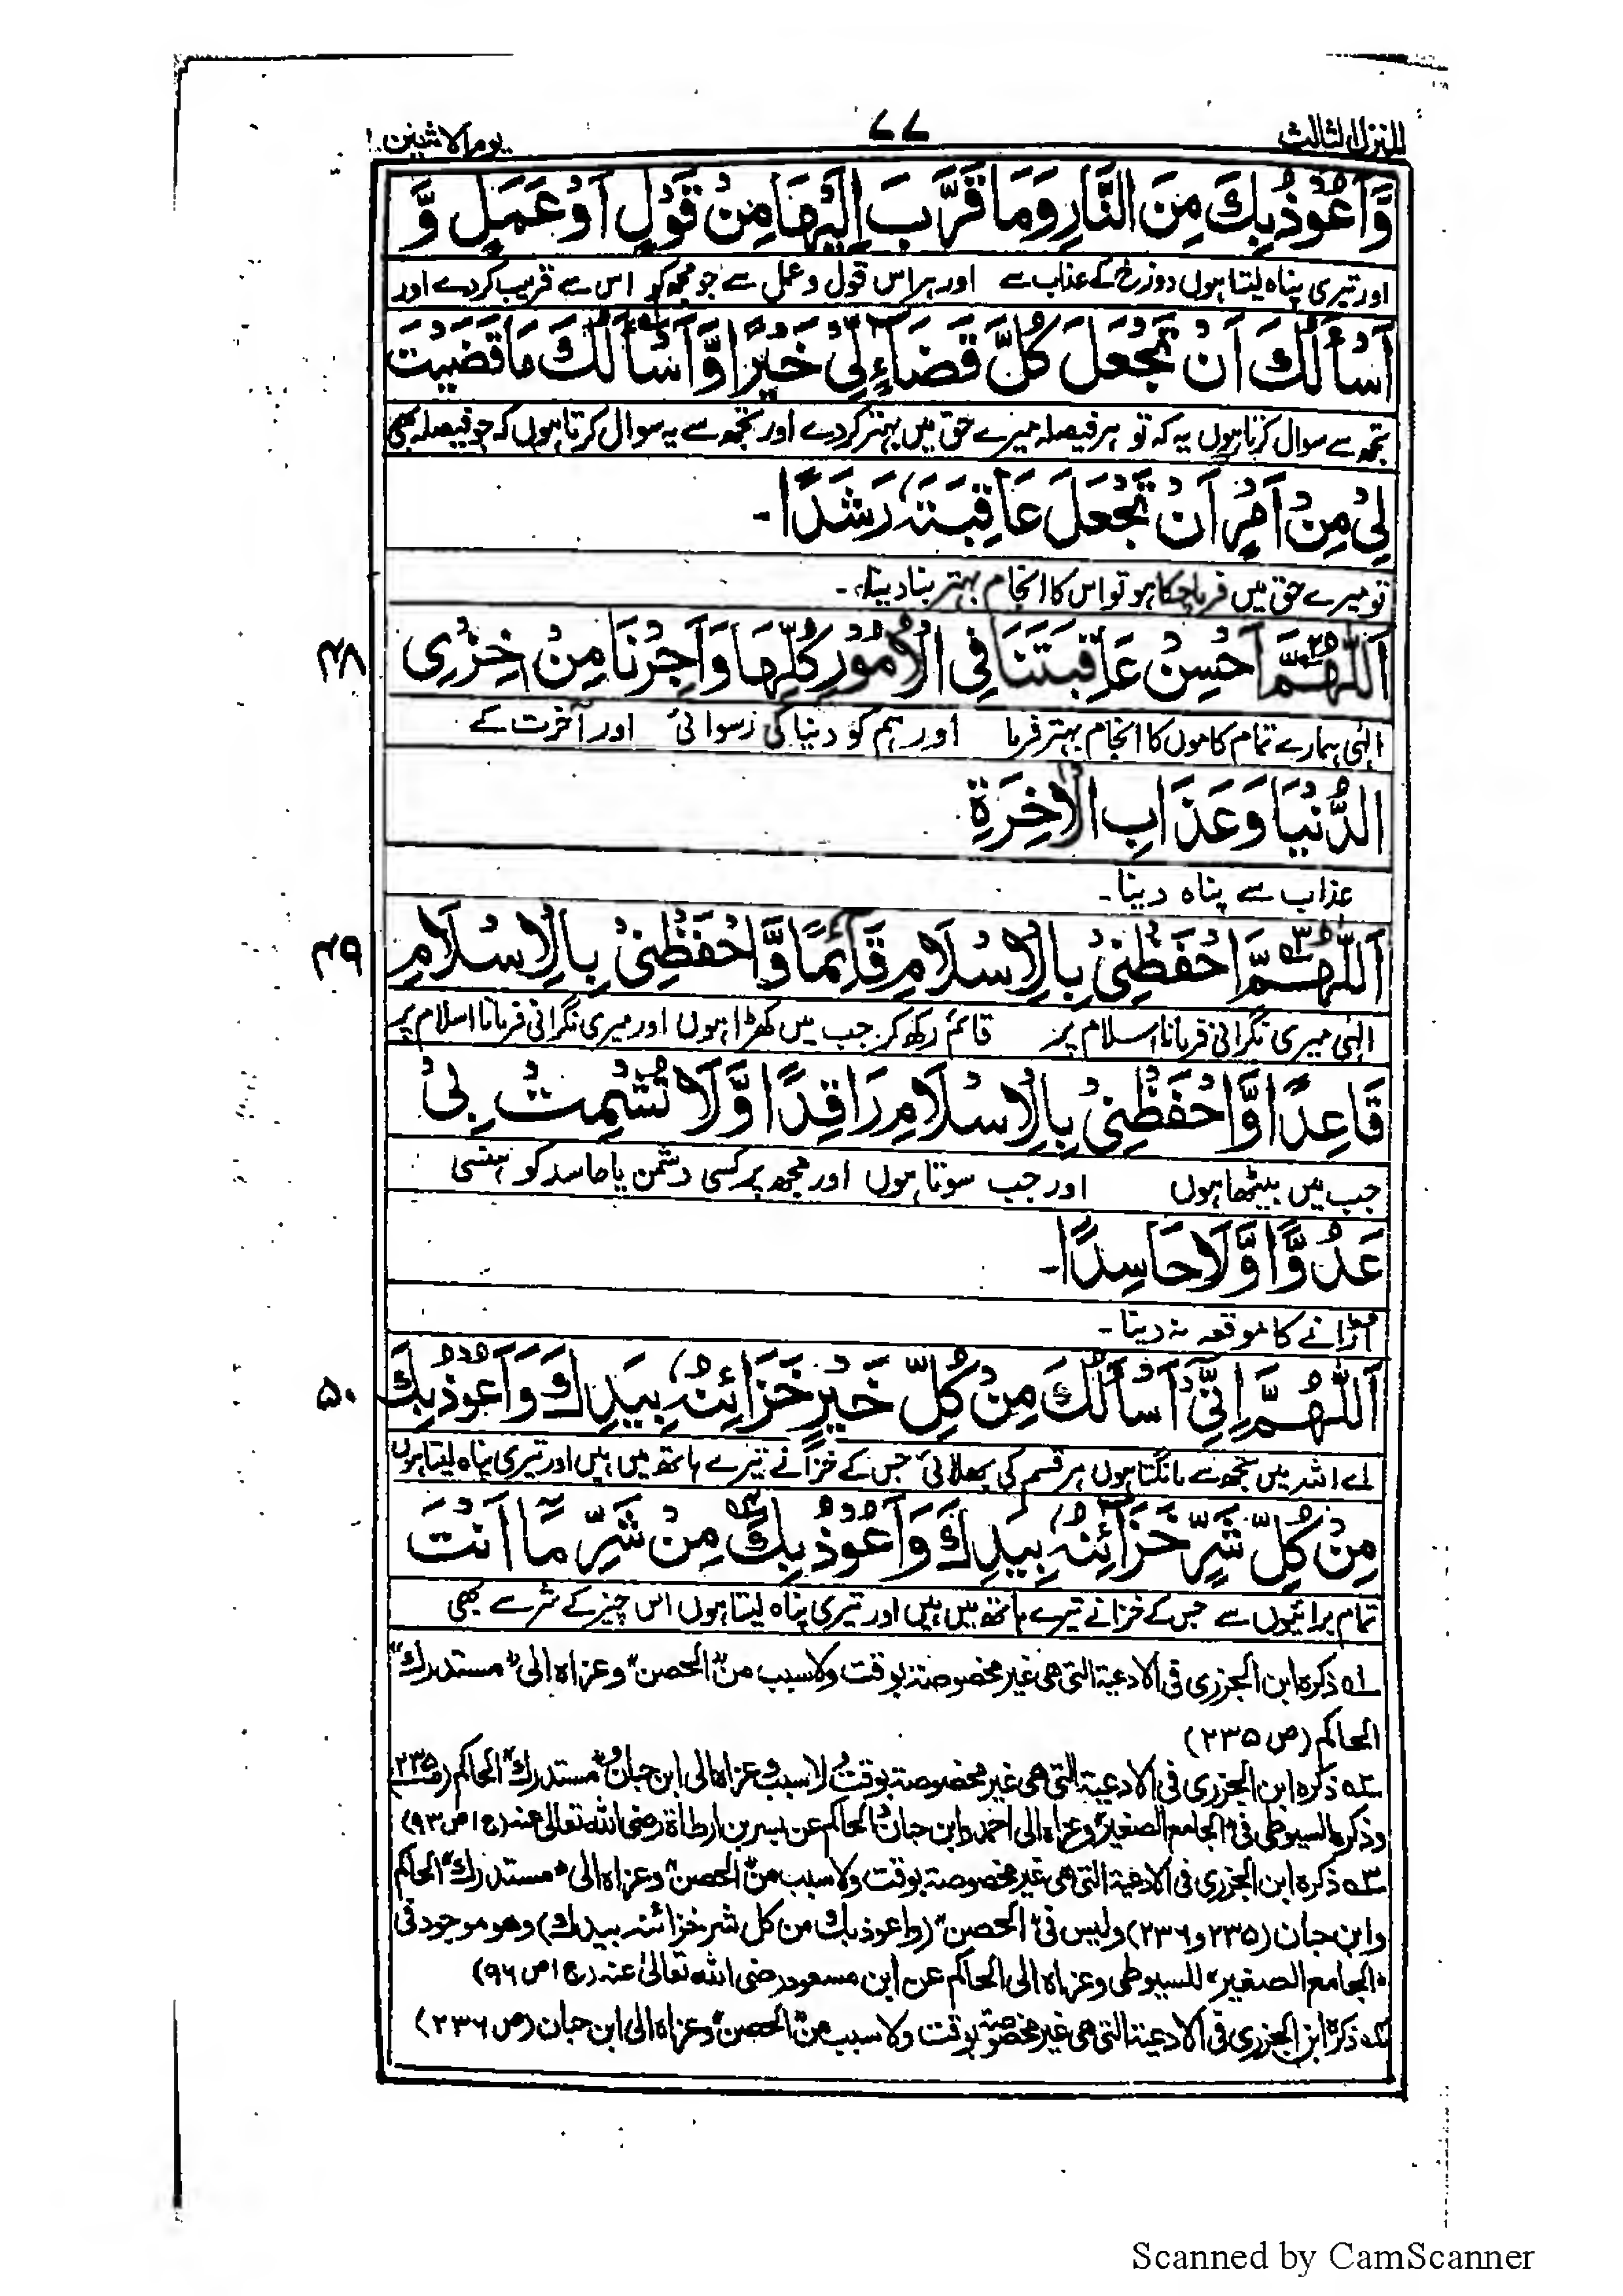 المنزل الثالث
٧٧
يوم الاثنين
وَّاَعُوْذُ بِكَ مِنَ النَّارِ وَمَا قَرَّبَ اِلَيْهَا مِنْ قَوْلٍ اَوْ عَمَلٍ وَّ
اور تیری پناہ لیتا ہوں دوزخ کے عذاب سے اور ہر اس قول و عمل سے جو مجھ کو اس سے قریب کردے اور
اَسْأَلُكَ اَنْ تَجْعَلَ كُلَّ قَضَاءٍ لِيْ خَيْرًا وَّاَسْأَلُكَ مَا قَضَيْتَ
تجھ سے سوال کرتا ہوں یہ کہ تو ہر فیصلہ میرے حق میں بہتر کردے اور تجھ سے یہ سوال کرتا ہوں کہ جو فیصلہ بھی
لِيْ مِنْ اَمْرٍ اَنْ تَجْعَلَ عَاقِبَتَهٗ رَشَدًا۔
تو میرے حق میں فرما چکا ہو تو اس کا انجام بہتر بنا دینا۔
٤٨
اَللّٰهُمَّ اَحْسِنْ عَاقِبَتَنَا فِي الْاُمُوْرِ كُلِّهَا وَاَجِرْنَا مِنْ خِزْيِ
الٰہی ہمارے تمام کاموں کا انجام بہتر فرما اور ہم کو دنیا کی رسوائی اور آخرت کے
الدُّنْيَا وَعَذَابِ الْاٰخِرَةِ
عذاب سے پناہ دینا۔
٤٩
اَللّٰهُمَّ احْفَظْنِيْ بِالْاِسْلَامِ قَائِمًا وَّاحْفَظْنِيْ بِالْاِسْلَامِ
الٰہی میری نگرانی فرمانا اسلام پر قائم رکھ کر جب میں کھڑا ہوں اور میری نگرانی فرمانا اسلام پر
قَاعِدًا وَّاحْفَظْنِيْ بِالْاِسْلَامِ رَاقِدًا وَّلَا تُشْمِتْ بِيْ
جب میں بیٹھا ہوں اور جب سوتا ہوں اور مجھ پر کسی دشمن یا حاسد کو ہنسی
عَدُوًّا وَّلَا حَاسِدًا۔
اڑانے کا موقعہ نہ دینا۔
۵۰
اَللّٰهُمَّ اِنِّيْ اَسْأَلُكَ مِنْ كُلِّ خَيْرٍ خَزَائِنُهٗ بِيَدِكَ وَاَعُوْذُ بِكَ
اے اللہ میں تجھ سے مانگتا ہوں ہر قسم کی بھلائی جس کے خزانے تیرے ہاتھ میں ہیں اور تیری پناہ لیتا ہوں
مِنْ كُلِّ شَرٍّ خَزَائِنُهٗ بِيَدِكَ وَاَعُوْذُ بِكَ مِنْ شَرِّ مَا اَنْتَ
تمام برائیوں سے جس کے خزانے تیرے ہاتھ میں ہیں اور تیری پناہ لیتا ہوں اس چیز کے شر سے بھی
۱ ذكره ابن الجزرى فى الادعية التى هى غير مخصوصة بوقت ولا سبب من "الحصن" وعزاه الى "مستدرك"
الحاكم (ص ۲۳۵)
۲ ذكره ابن الجزرى فى الادعية التى هى غير مخصوصة بوقت ولا سبب وعزاه الى ابن حبان و "مستدرك" الحاكم (ص ۲۳۵)
وذكره السيوطى فى "الجامع الصغير" وعزاه الى احمد وابن حبان والحاكم عن بسر بن ارطاة رضى الله تعالى عنه (ج ۱ ص ۹۳)
۳ ذكره ابن الجزرى فى الادعية التى هى غير مخصوصة بوقت ولا سبب من "الحصن" وعزاه الى "مستدرك" الحاكم
وابن حبان (۲۳۵ و ۲۳۶) وليس فى "الحصن" (واعوذ بك من كل شر خزائنه بيدك) وهو موجود فى
"الجامع الصغير" للسيوطى وعزاه الى الحاكم عن ابن مسعود رضى الله تعالىٰ عنه (ج ۱ ص ۹۶)
۴ ذكره ابن الجزرى فى الادعية التى هى غير مخصوصة بوقت ولا سبب من "الحصن" وعزاه الى ابن حبان (ص ۲۳۶)
Scanned by CamScanner